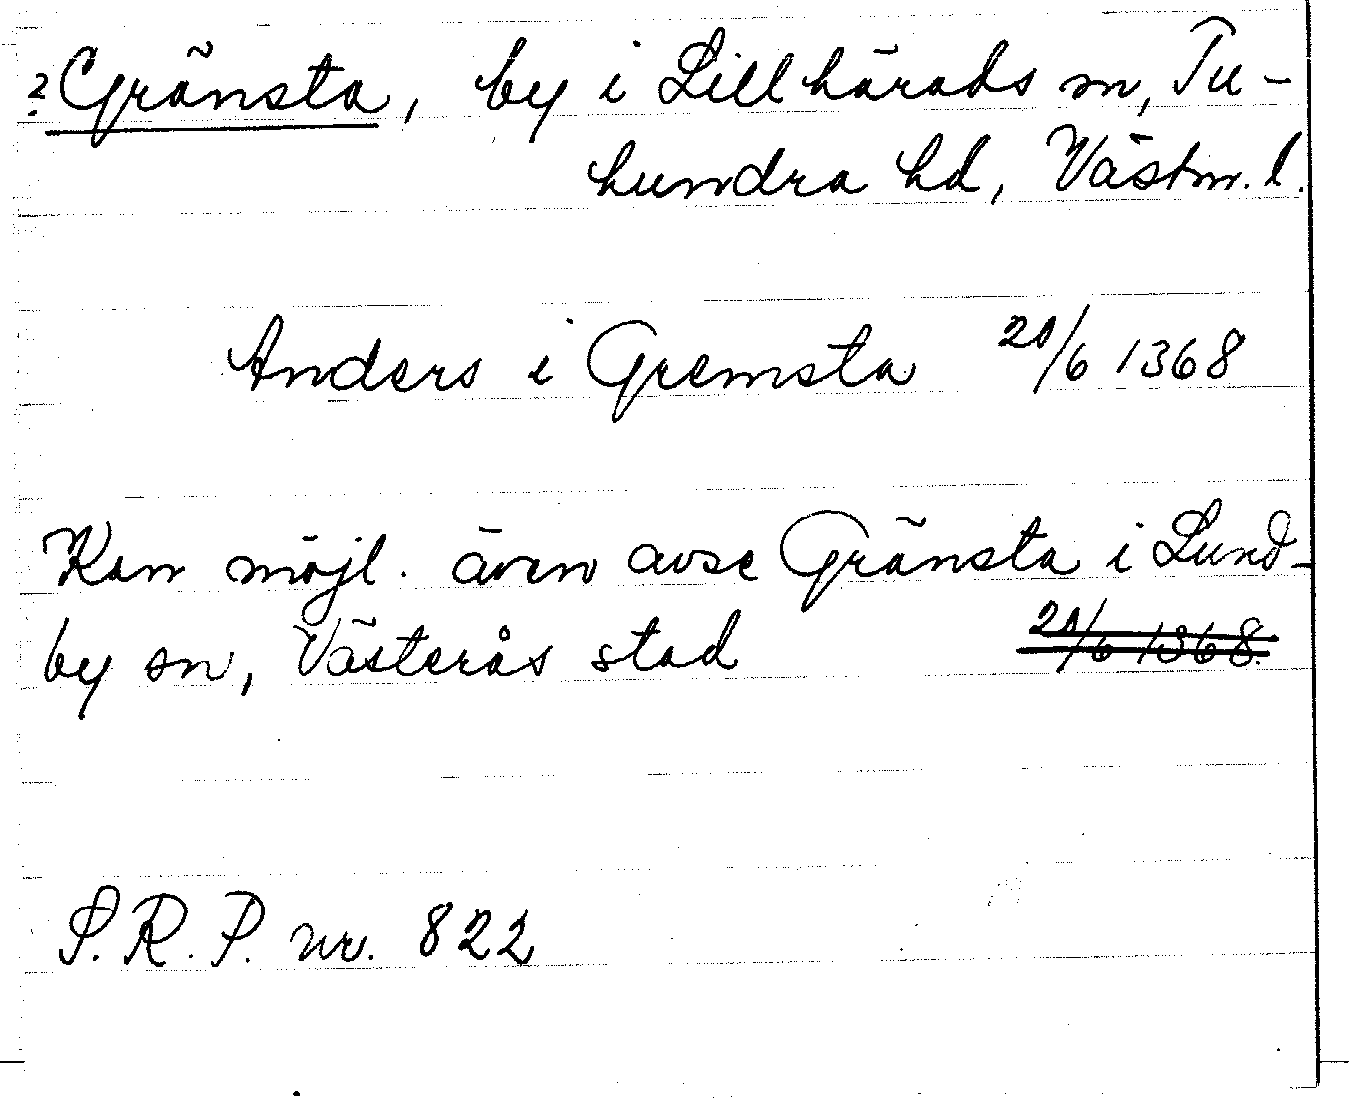 ? Gränsta, by i Lillhärads sn, Tu-
hundra hd, Västm. l.
Anders i Gremsta 20/6 1368
Kan möjl. även avse Gränsta i Lund-
by sn, Västerås stad 20/6 1368.
S.R.P. nr. 822